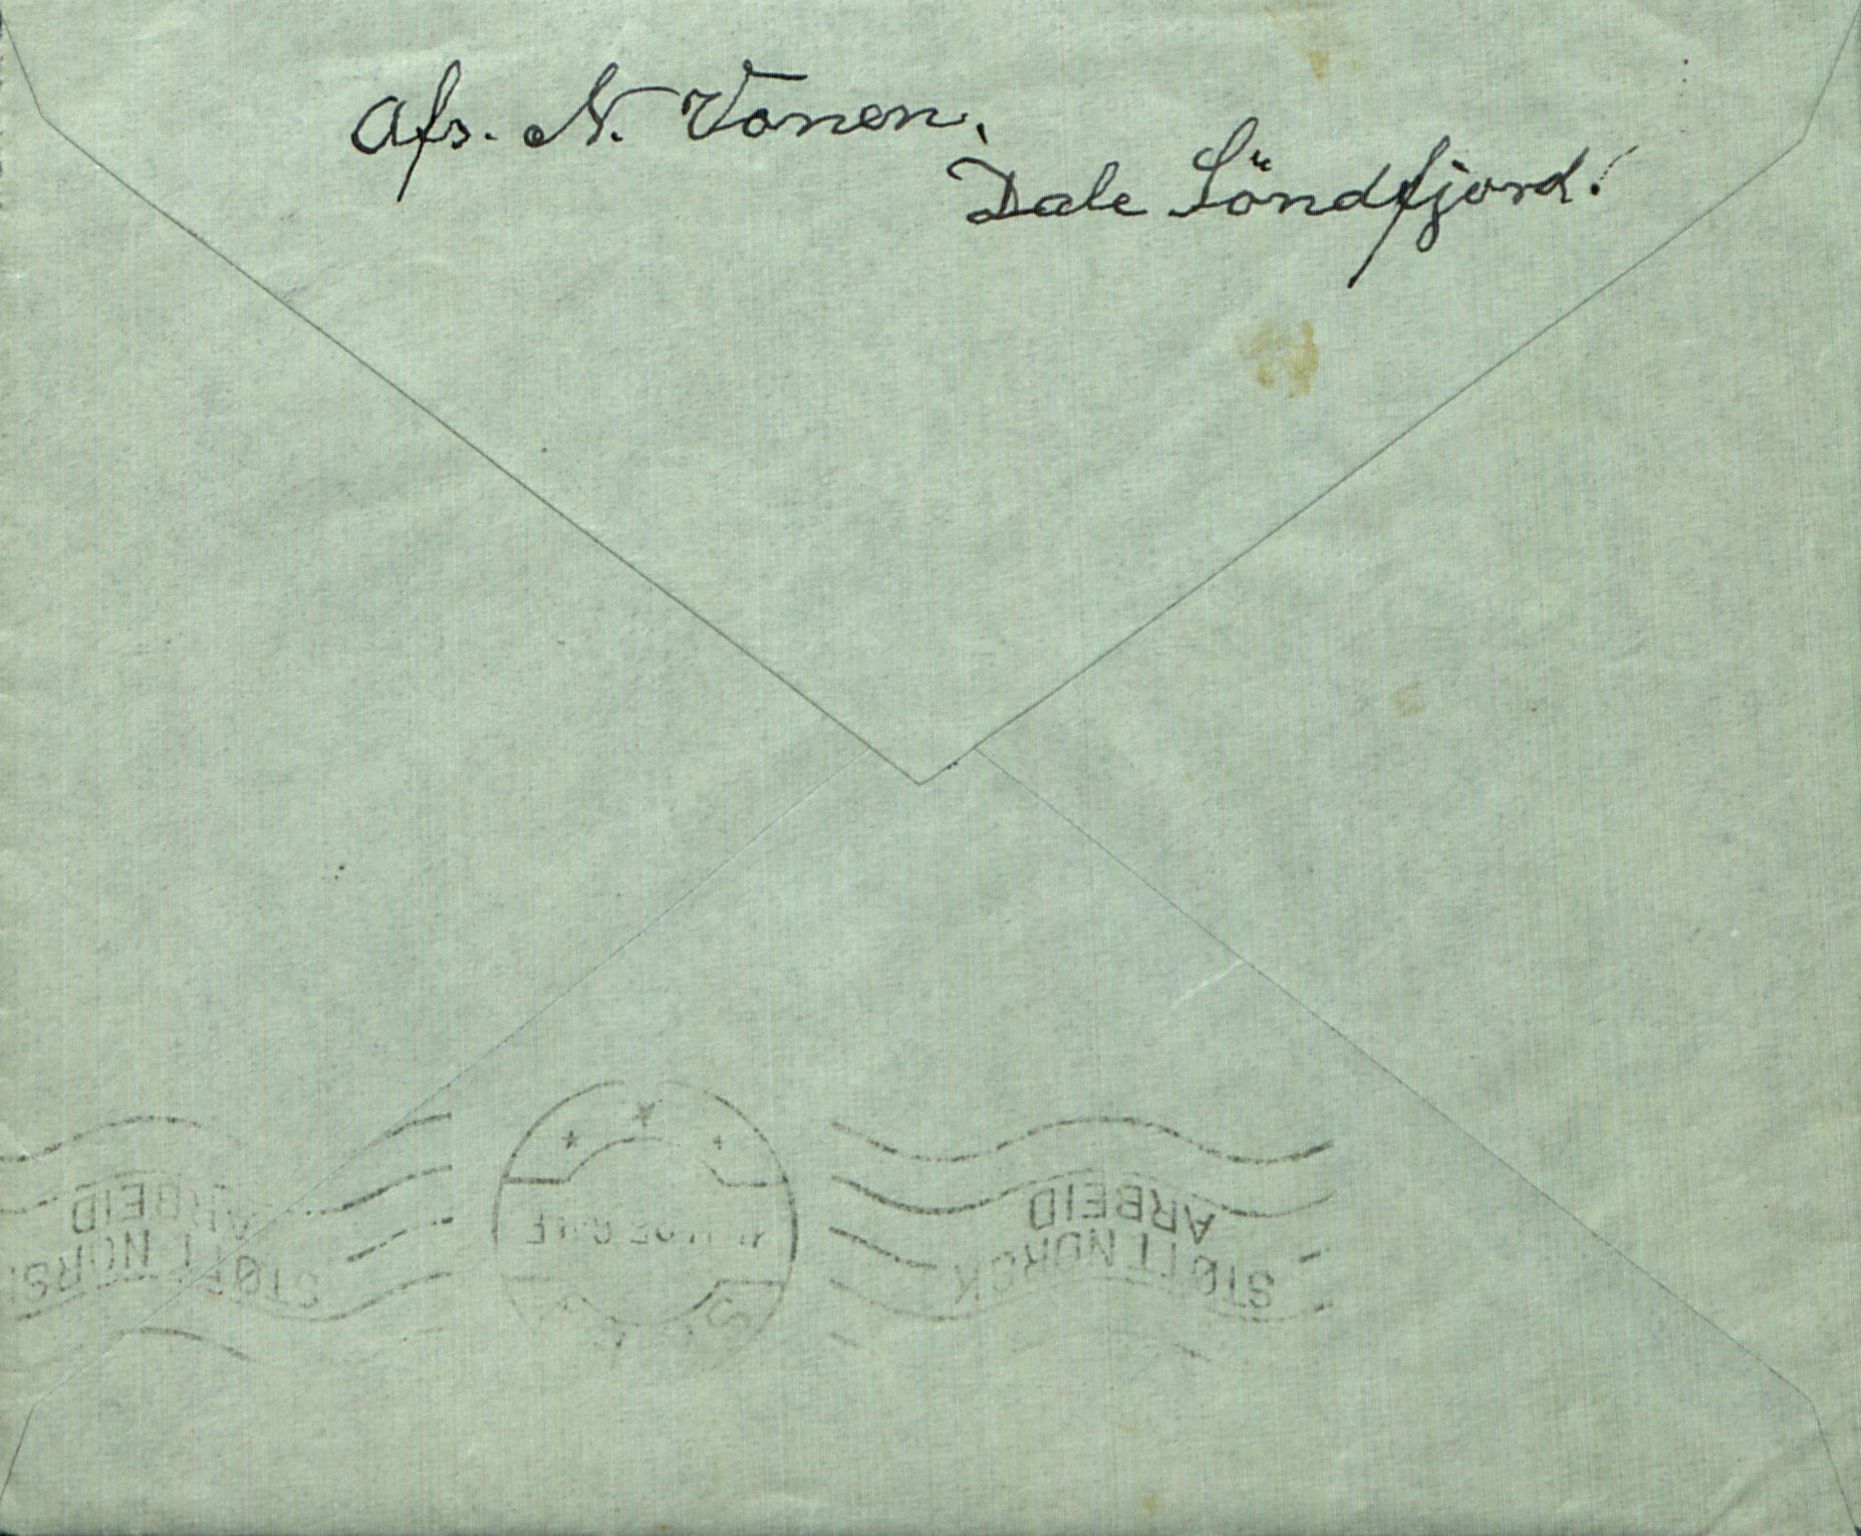 Afs. N. Vonen,
Dale Söndfjord.
STØTT NORSK
ARBEID
STØTT NORSK
ARBEID